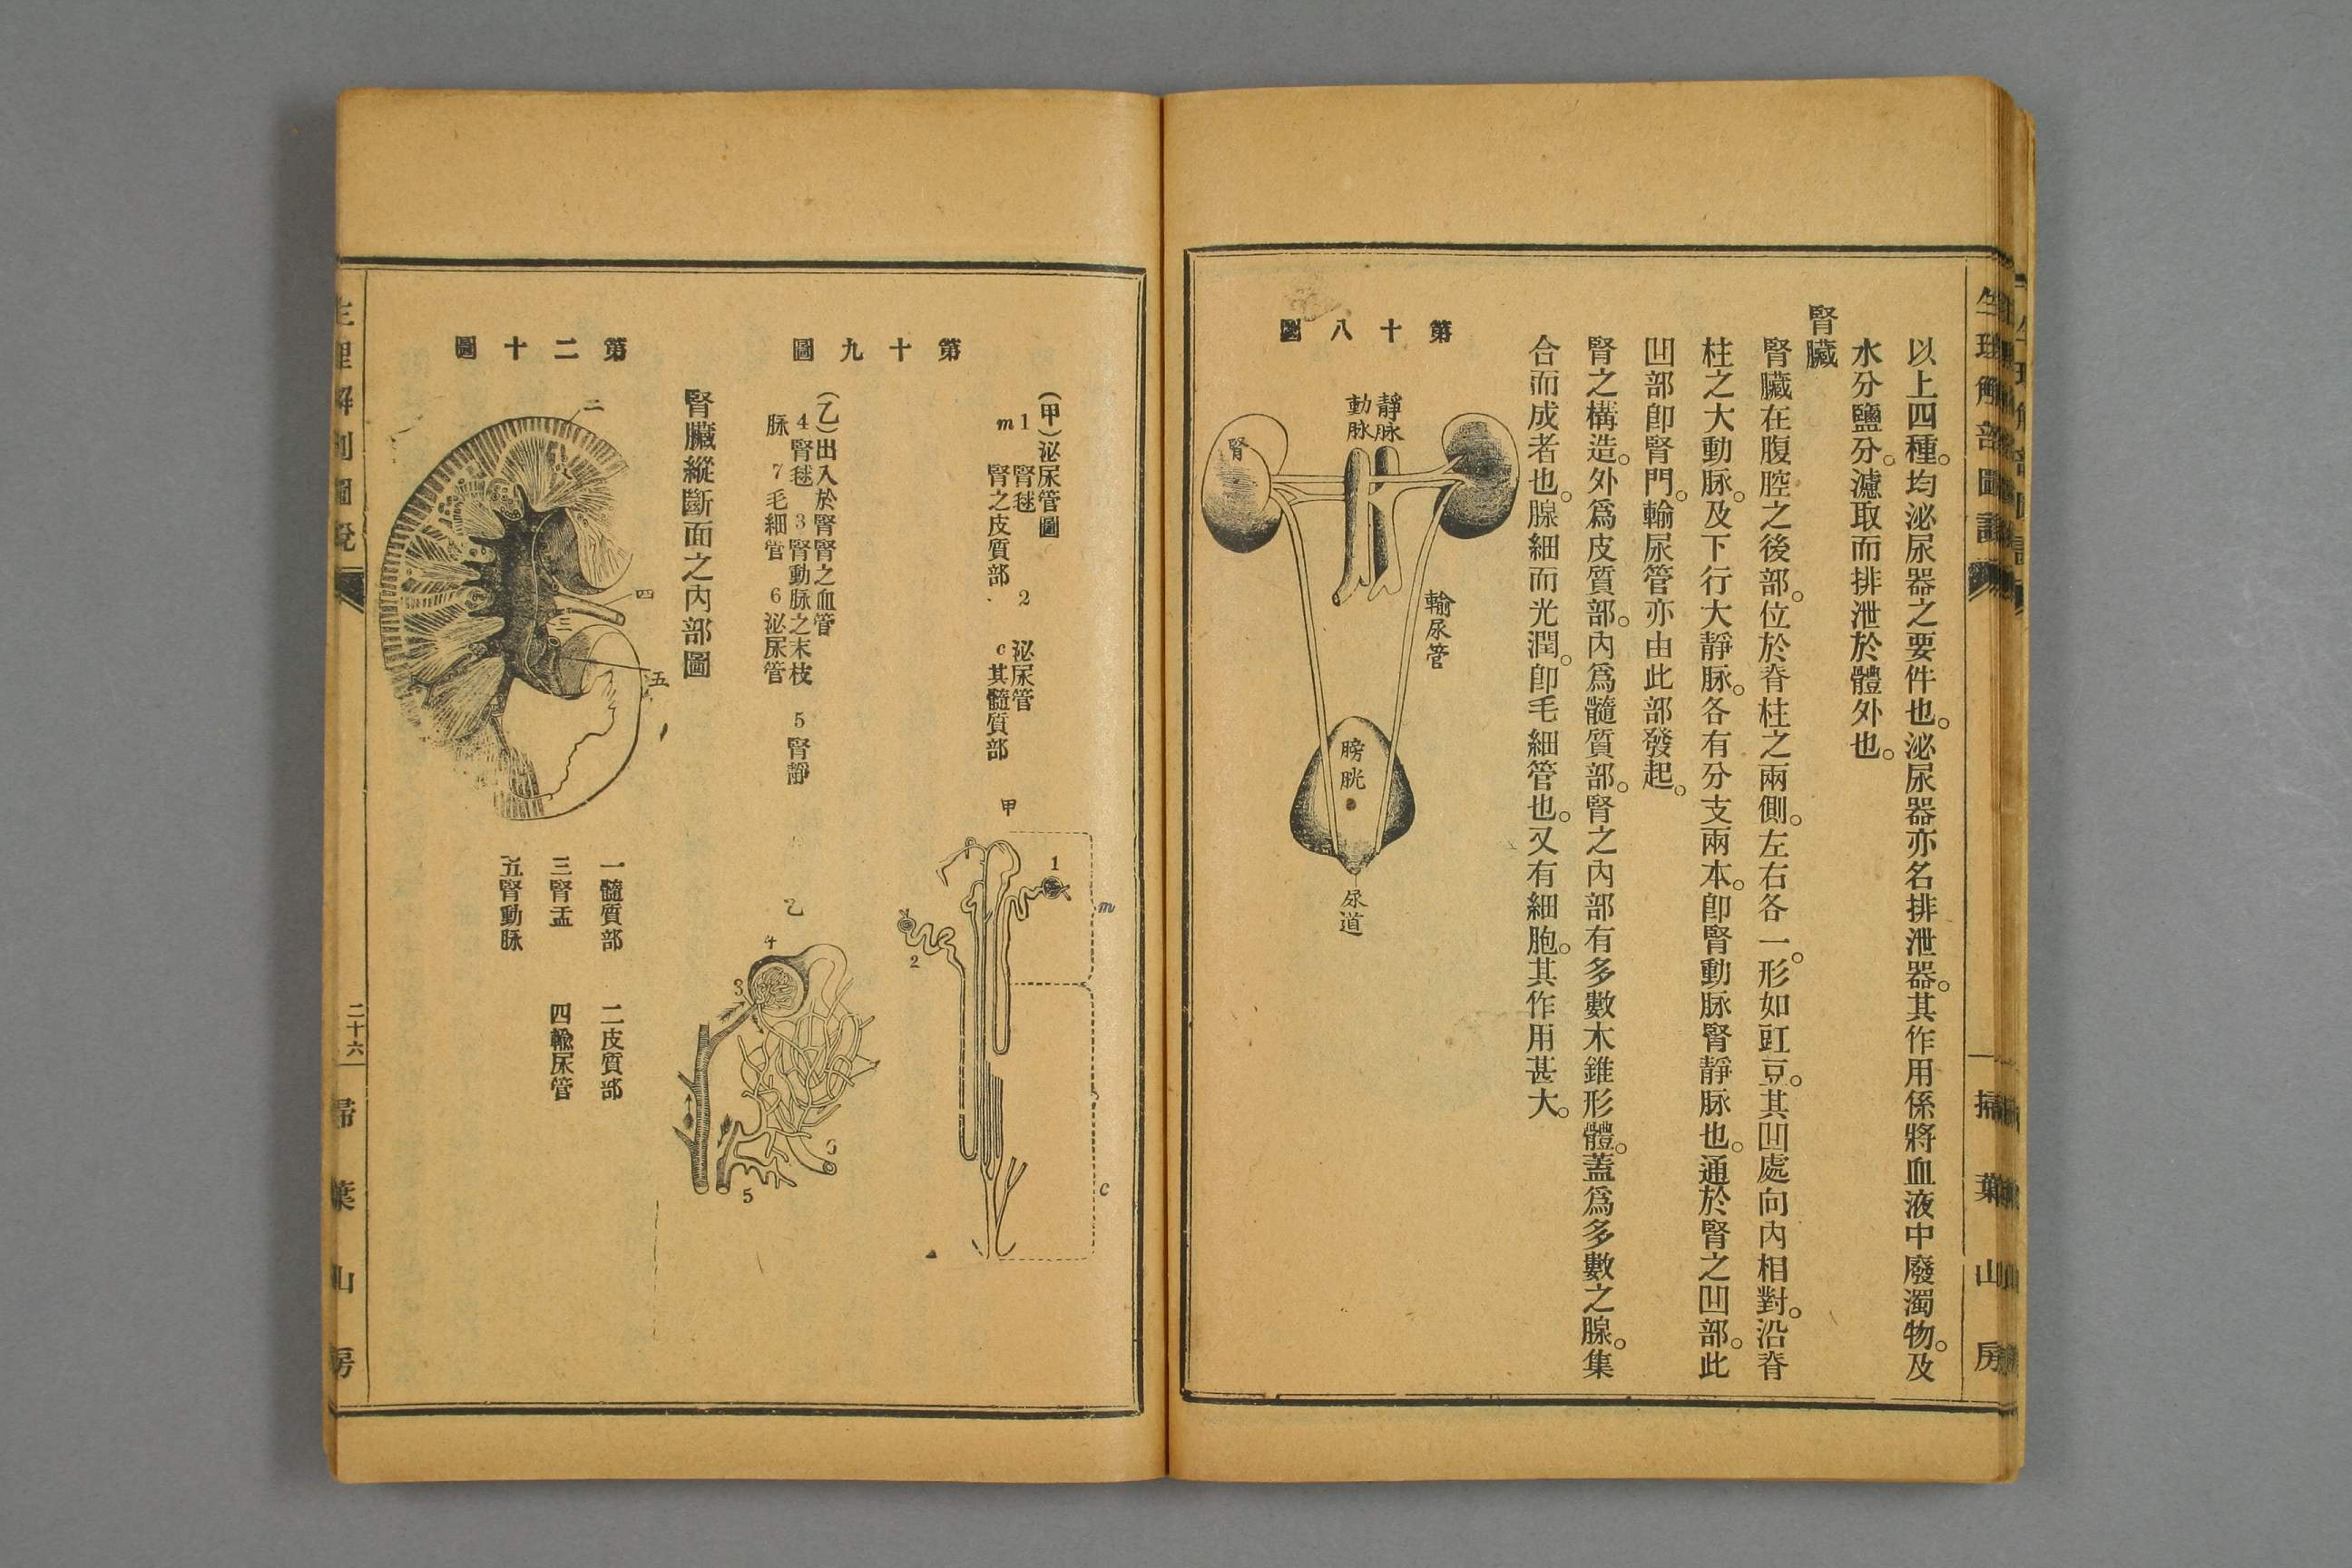 生理解剖圖說
掃葉山房
以上四種。均泌尿器之要件也。泌尿器亦名排泄器。其作用係將血液中廢濁物。及
水分鹽分。濾取而排泄於體外也。
腎臟
腎臟在腹腔之後部。位於脊柱之兩側。左右各一。形如豇豆。其凹處向內相對。沿脊
柱之大動脉。及下行大靜脉。各有分支兩本。卽腎動脉腎靜脉也。通於腎之凹部。此
凹部卽腎門。輸尿管亦由此部發起。
腎之構造。外爲皮質部。內爲髓質部。腎之內部有多數木錐形體。蓋爲多數之腺。集
合而成者也。腺細而光潤。卽毛細管也。又有細胞。其作用甚大。
第十八圖
靜脉
動脉
腎
輸尿管
膀胱
尿道
第十九圖
(甲)泌尿管圖
1 腎毬 2 泌尿管
m 腎之皮質部 c 其髓質部
甲
1
2
m
c
(乙)出入於腎腎之血管
4 腎毬 3 腎動脉之末枝 5 腎靜
脉 7 毛細管 6 泌尿管
乙
4
3
6
5
第二十圖
腎臟縱斷面之內部圖
二
四
三
五
一髓質部 二皮質部
三腎盂 四輸尿管
五腎動脉
生理解剖圖說
二十六
掃葉山房